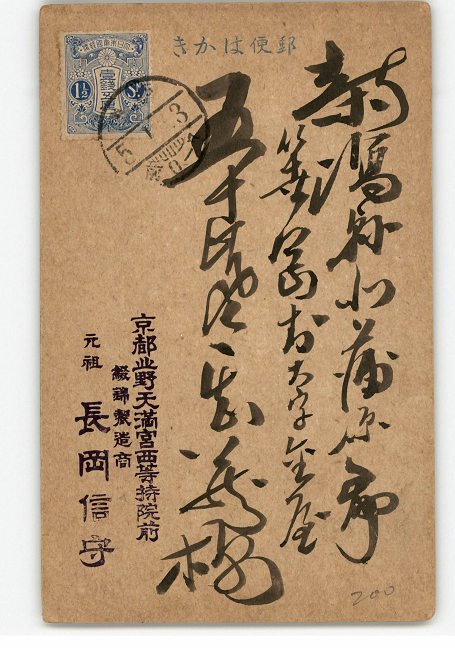 郵便はかき
大日本帝國郵便
壹錢五厘
1½ Sn
新潟縣北蒲原郡
笹岡村大字金屋
五十嵐
樣
京都北野天満宮西等持院前
綴錦製造商
元祖 長岡信守
200